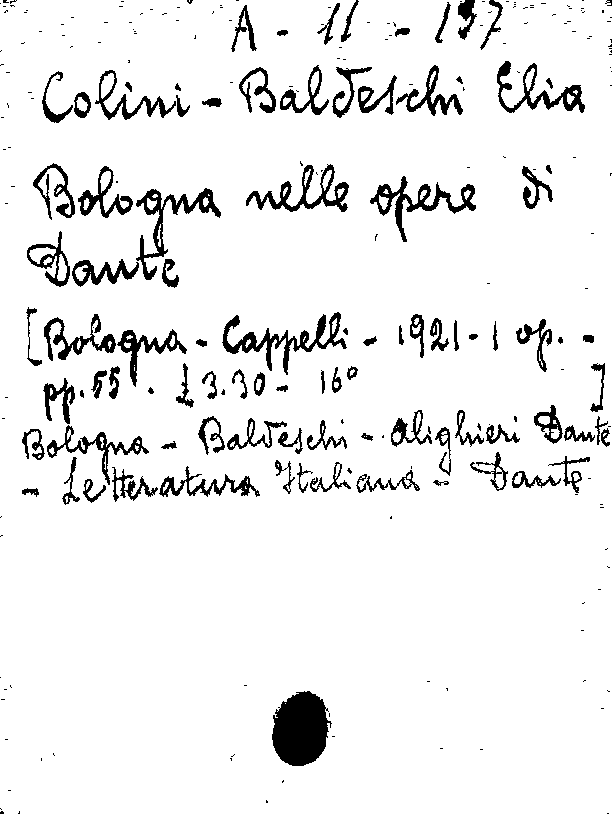 A - 11 - 137
Colini - Baldeschi Elia
Bologna nelle opere di
Dante
[Bologna - Cappelli - 1921 - 1 op. -
pp. 55 . £ 3.30 - 16° ]
Bologna - Baldeschi - Alighieri Dante
- Letteratura Italiana - Dante